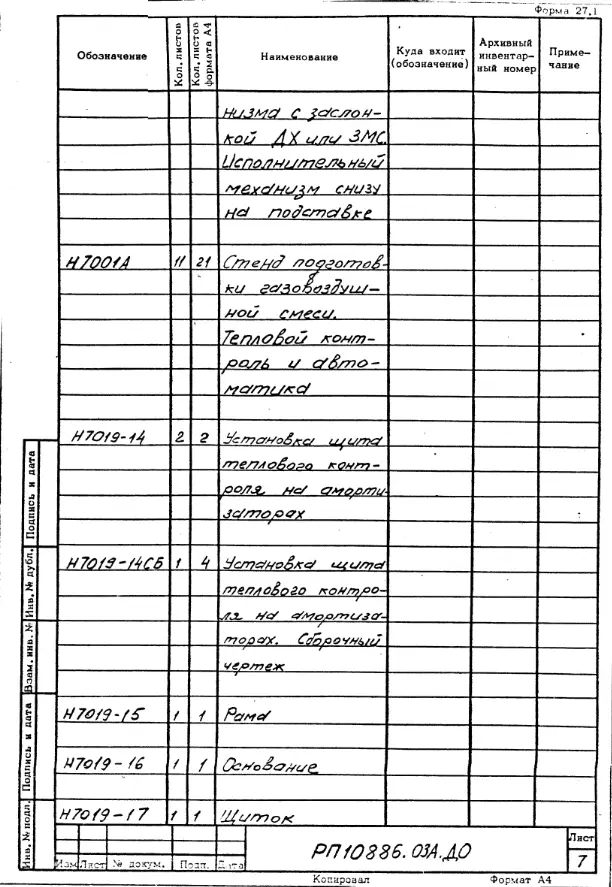 Форма 27.1
Обозначение Кол. листов Кол. листов формата А4 Наименование Куда входит (обозначение) Архивный инвентар- ный номер Приме- чание
низма с заслон-
кой ДХ или ЗМС.
Исполнительный
механизм снизу
на подставке
Н7001А 11 21 Стенд подготов-
ки газовоздуш-
ной смеси.
Тепловой конт-
роль и авто-
матика
Н7019-14 2 2 Установка щита
теплового конт-
роля на аморти-
заторах
Н7019-14СБ 1 4 Установка щита
теплового контро-
ля на амортиза-
торах. Сборочный
чертеж
Н7019-15 1 1 Рама
Н7019-16 1 1 Основание
Н7019-17 1 1 Щиток
Подпись и дата
Инв. № дубл.
Взам. инв. №
Подпись и дата
Инв. № подл.
РП10886.03А.ДО
Лист
7
Изм Лист № докум. Подп. Дата
Копировал Формат А4